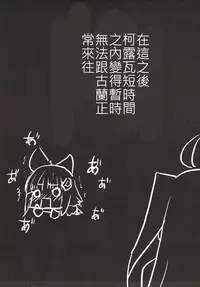 在這之後
柯露瓦短時間
之內變得暫時
無法跟古蘭正
常來往
あ゛
あ゛
あ゛
あ゛